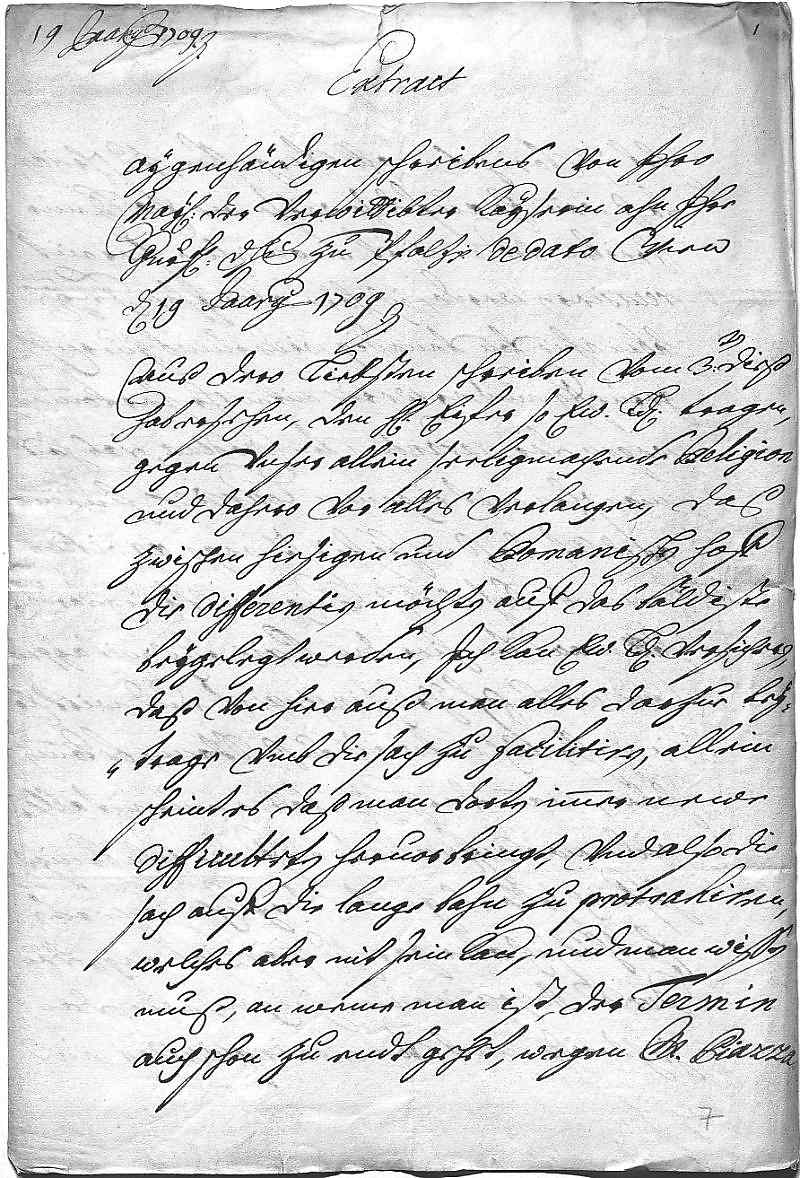 19 Jaary 1709
1
Extract
aygenhändigen schreibens von Ihro
May: der verwittibter Kayserin ahn Ihre
zu Pfaltz de dato Wien
d 19 Jaary 1709
Auß dero liebsten schreiben vom 3 diß
hab ersehen, den Eyfer so Ew. tragen,
gegen unser allein seeligmachende Religion
und dahero vor alles verlangen, das
zwischen hiesigen und Romanisch hoff
die differentien möchte auff das bäldigste
beygelegt werden, Ich kan Ew. versichern,
daß von hier auß man alles darzur bey-
trage umb die sach zu facilitiren, allein
scheint es daß man dorten immer newe
difficulteten hervorbringt, und also die
sach auff die lange bahn zu protrahiren,
welches aber nit sein kan, und man wissen
muß, an weme man ist, der Termin
auch schon zu endt gehet, wegen M. Piazza
7